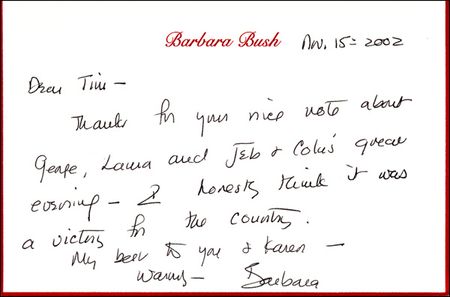 Barbara Bush
Nov. 15 = 2002
Dear Tim -
Thanks for your nice note about
George, Laura and Jeb & Colu's great
evening - I honestly think it was
a victory for the country.
My best to you & Karen -
Warmly - Barbara